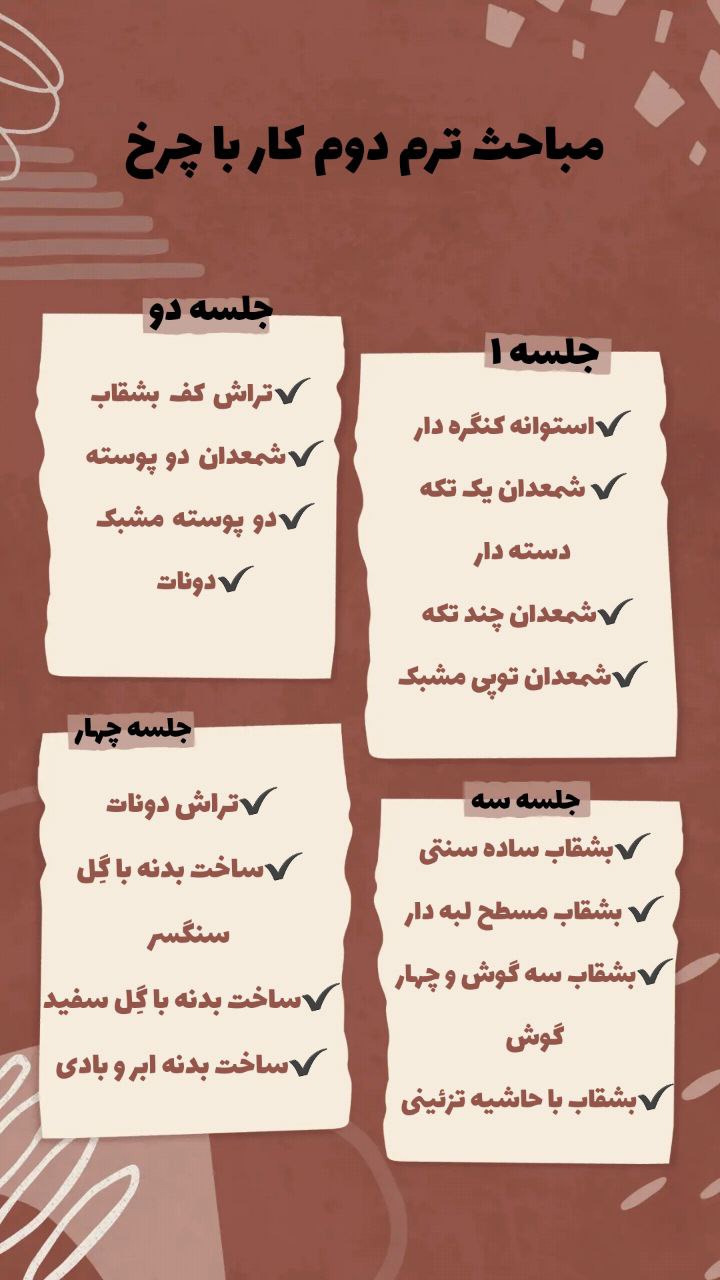 مباحث ترم دوم کار با چرخ
جلسه ۱
✔استوانه کنگره دار
✔شمعدان یک تکه
دسته دار
✔شمعدان چند تکه
✔شمعدان توپی مشبک
جلسه دو
✔تراش کف بشقاب
✔شمعدان دو پوسته
✔دو پوسته مشبک
✔دونات
جلسه سه
✔بشقاب ساده سنتی
✔بشقاب مسطح لبه دار
✔بشقاب سه گوش و چهار
گوش
✔بشقاب با حاشیه تزئینی
جلسه چهار
✔تراش دونات
✔ساخت بدنه با گِل
سنگسر
✔ساخت بدنه با گِل سفید
✔ساخت بدنه ابر و بادی